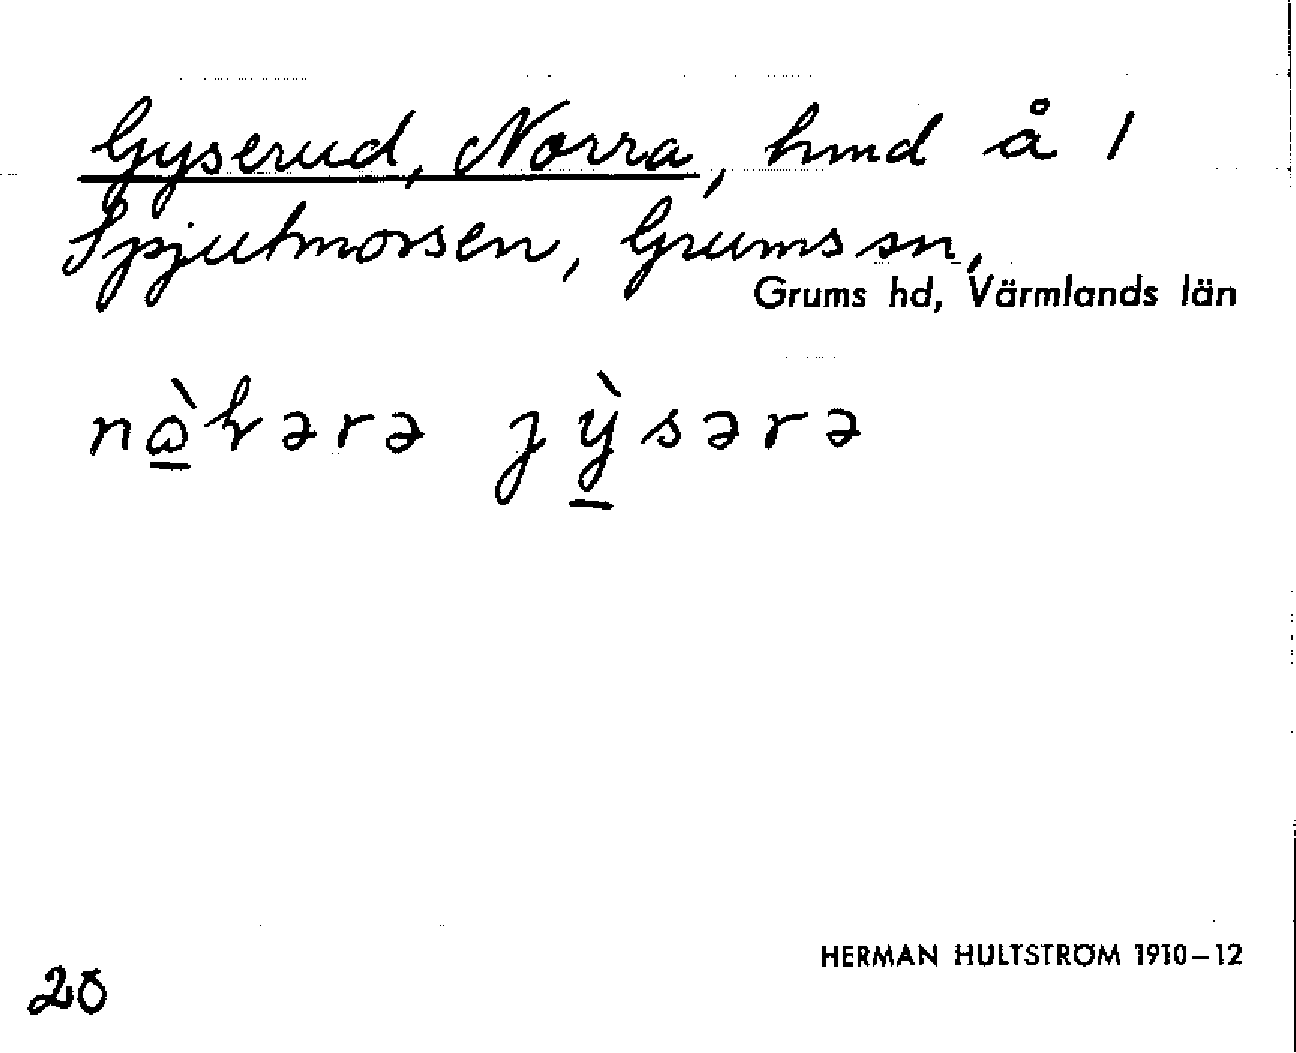 Gyserud, Norra, hmd å 1
Spjutmorsen, Grums sn,
Grums hd, Värmlands län
nɷ̀kərə jỳsərə
HERMAN HULTSTRÖM 1910–12
28